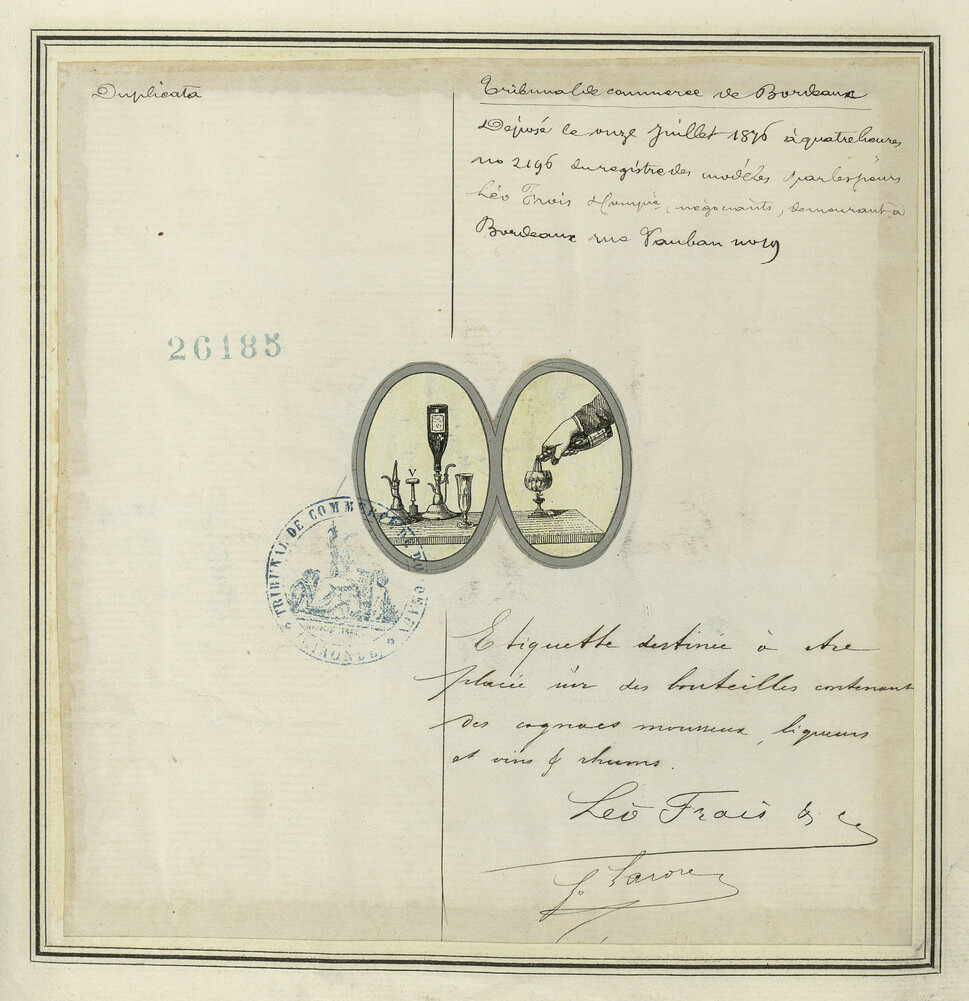 Duplicata
Tribunal de commerce de Bordeaux
Déposé le onze Juillet 1876 à quatre heures
no 2196 du registre des modèles par les sieurs
Léo Frois & Compie, négociants, demeurant à
Bordeaux rue Vauban no 19
26185
V
TRIBUNAL DE COMMERCE DE BORDEAUX
GIRONDE
Etiquette destinée à être
placée sur des bouteilles contenant
des cognacs mousseux, liqueurs
et vins & rhums.
Léo Frois & Ce